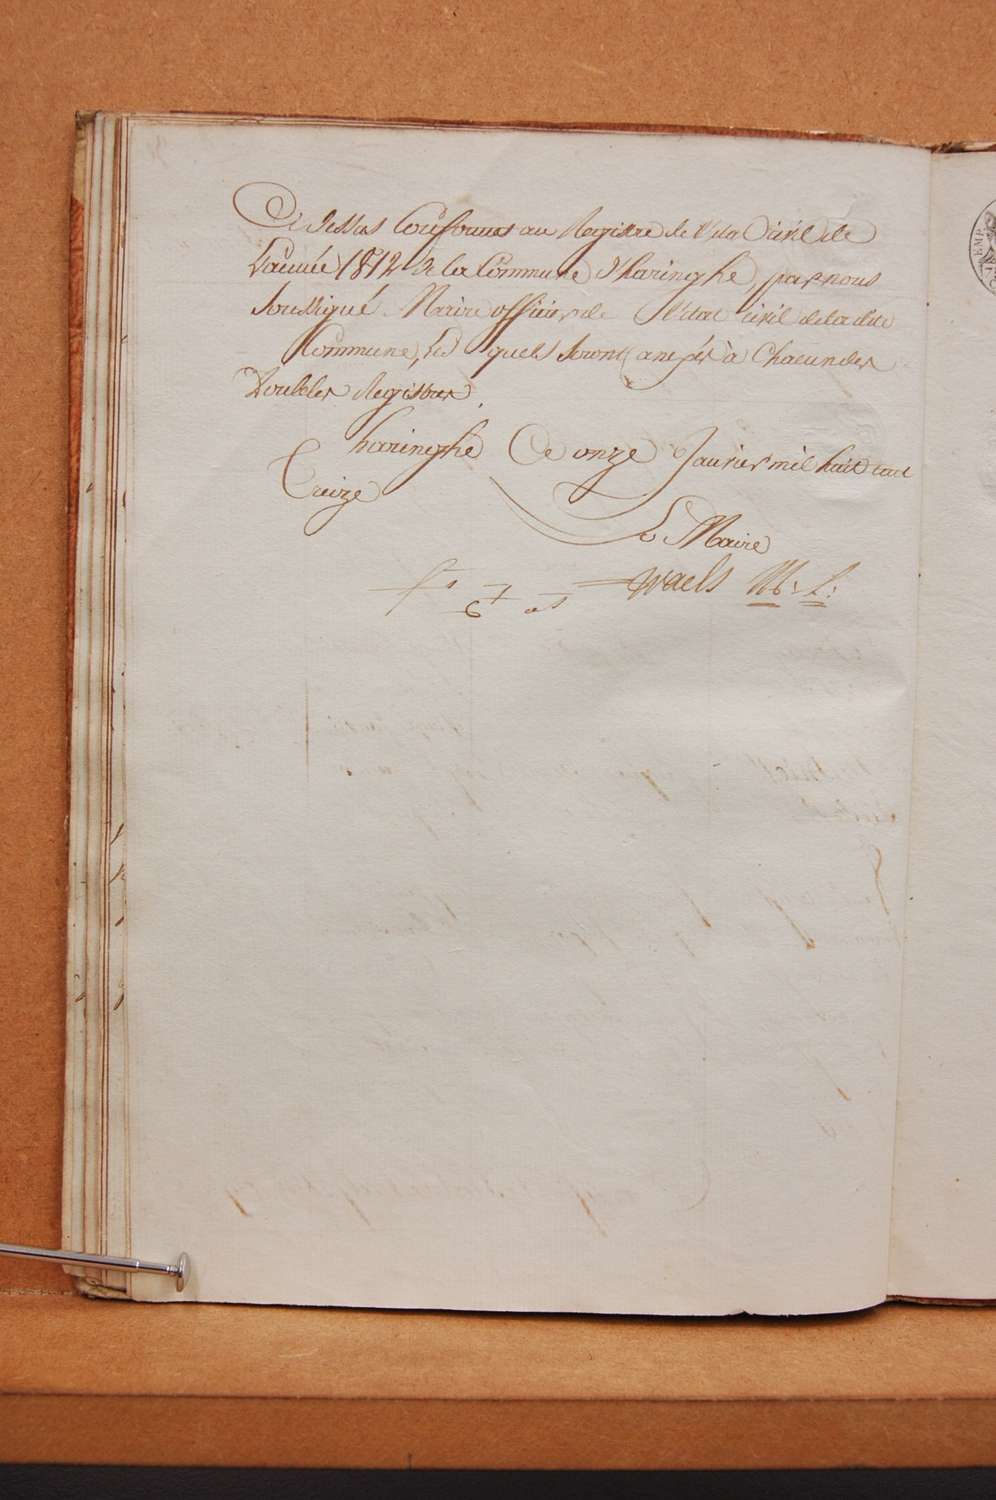 Ci dessus Conformes au Registre de l'etat Civil de
l'année 1812 de la Commune d'haringhe, par nous
Soussigné Maire officier de l'Etat civil de la dite
Commune, les quels seront anexés à Chacun des
Doubles Registres.
haringhe Ce onze Janvier mil huit cent
Treize
Le Maire
Waels
EMP